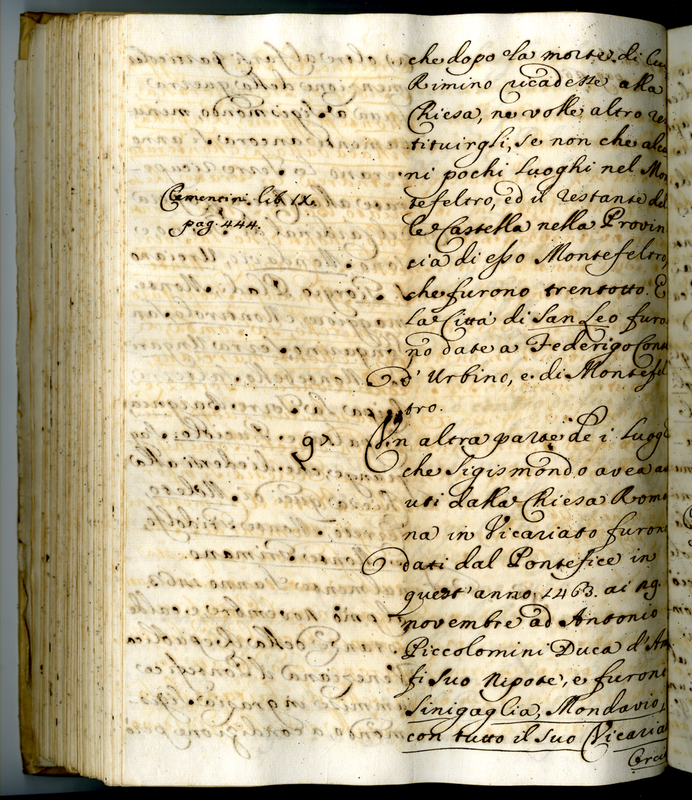 che dopo la morte di
Rimino ricadette alla
Chiesa, ne volle altro re
tituirgli, se non che alcu
ni pochi Luoghi nel Mon
Clementini lib. IX.
pag. 444.
tefeltro, ed il restante del
le Castella nella Provin
cia di esso Montefeltro,
che furono trentotto. E
la Città di San Leo furo
no date a Federigo Con
d'Urbino, e di Montefel
tro.
9.
Un altra parte de i Luog
che Sigismondo avea a
uti dalla Chiesa Roma
na in Vicariato furon
dati dal Pontefice in
quest'anno 1463. ai
novembre ad Antonio
Piccolomini Duca d'Am
fi suo Nipote, e furono
Sinigaglia, Mondavio,
con tutto il suo Vicaria